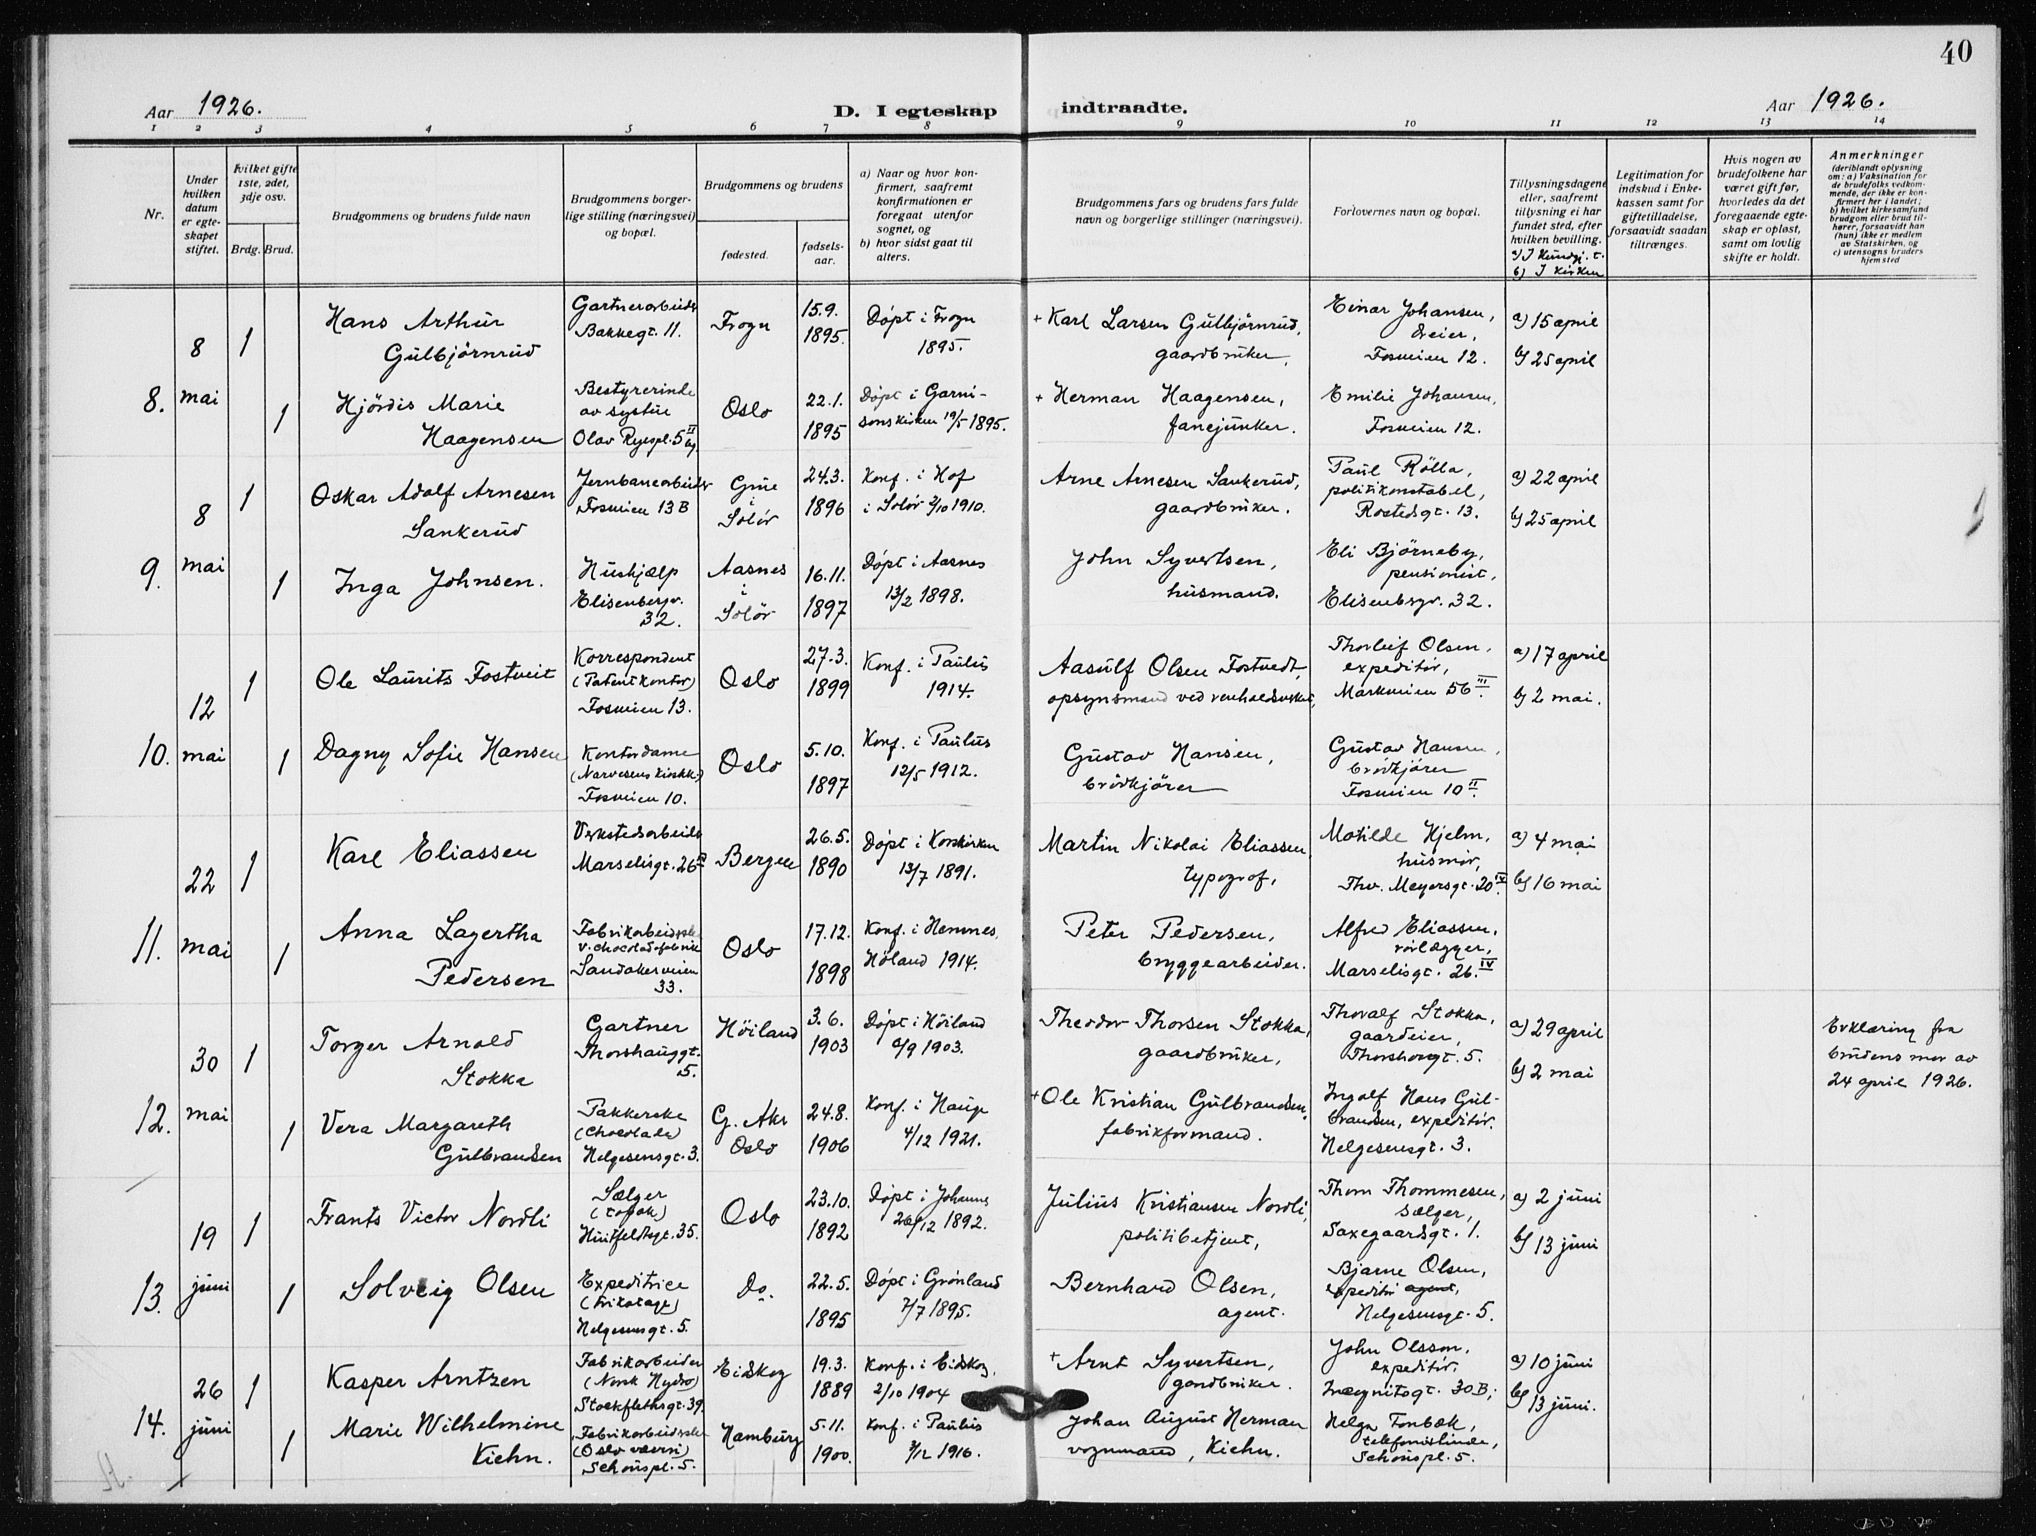 40
Aar 1926.
D. I egteskap indtraadte.
Aar 1926.
1 2 3 4 5 6 7 8 9 10 11 12 13 14
Nr.
Under hvilken datum er egteskapet stiftet.
Hvilket gifte 1ste, 2det, 3dje osv.
Brdg. Brud.
Brudgommens og brudens fulde navn
Brudgommens borgerlige stilling (næringsvei) og bopæl.
Brudgommens og brudens
fødested.
fødselsaar.
a) Naar og hvor konfirmert, saafremt konfirmationen er foregaat utenfor sognet, og
b) hvor sidst gaat til alters.
Brudgommens fars og brudens fars fulde navn og borgerlige stillinger (næringsvei).
Forlovernes navn og bopæl.
Tillysningsdagene eller, saafremt tillysning ei har fundet sted, efter hvilken bevilling.
a) I kundgj. t.
b) I kirken
Legitimation for indskud i Enkekassen samt for giftetilladelse, forsaavidt saadan tiltrænges.
Hvis nogen av brudefolkene har været gift før, hvorledes da det foregaaende egteskap er opløst, samt om lovlig skifte er holdt.
Anmerkninger
(deriblandt oplysning om: a) Vaksination for de brudefolks vedkommende, der ikke er konfirmert her i landet; b) hvilket kirkesamfund brudgom eller brud tilhører, forsaavidt han (hun) ikke er medlem av Statskirken, og c) utensogns bruders hjemsted
8. 8 mai
1
Hans Arthur Gulbjörnrud
Gartnerarbeider Bakkegt. 11.
Frogn
15.9. 1895.
Döpt i Frogn 1895.
+ Karl Larsen Gulbjörnrud, gaardbruker.
Einar Johansen, Fosveien 12.
a) 15 april
b) 25 april
1
Hjördis Marie Haagensen
Bestyrerinde av systue Olav Ryespl. 5 II
Oslo
22.1. 1895
Döpt i Garnisonskirken 19/5 1895.
+ Herman Haagensen, fanejunker.
Emilie Johansen, Fosveien 12.
9. 8 mai
1
Oskar Adolf Arnesen Sankerud
Jernbanearbeider Fosveien 13 B
Grue i Solör
24.3. 1896
Konf. i Hof i Solör 2/10 1910.
Arne Arnesen Sankerud, gaardbruker.
Paul Rölla, politikonstabel, Rostedsgt. 13.
a) 22 april
b) 25 april
1
Inga Johnsen.
Hushjælp Elisenbergv. 32.
Aasnes i Solör
16.11. 1897
Döpt i Aasnes 13/2 1898.
John Syvertsen, husmand.
Eli Björneby, pensionist, Elisenbgv. 32.
10. 12 mai
1
Ole Laurits Fostveit
Korrespondent (Patentkontor) Fosveien 13.
Oslo
27.3. 1899
Konf. i Paulus 1914.
Aasulf Olsen Fostvedt, opsynsmand ved renholdsverket,
Thorleif Olsen, expeditör, Markveien 56 III.
a) 17 april
b) 2 mai.
1
Dagny Sofie Hansen
Kontordame (Narvesens kioskk.) Fosveien 10.
Oslo
5.10. 1897
Konf. i Paulus 12/5 1912.
Gustav Hansen, brödkjörer
Gustav Hansen, brödkjörer Fosveien 10 II.
11. 22 mai
1
Karl Eliassen
Verkstedsarbeider Marselisgt. 26 IV
Bergen
26.5. 1890
Döpt i Korskirken 13/7 1891.
Martin Nikolai Eliassen, typograf,
Matilde Hjelm, husmor, Thv. Meyersgt. 20 IV.
a) 4 mai
b) 16 mai
1
Anna Lagertha Pedersen
Fabrikarbeiderske v. chocoladefabrik Sandakerveien 33.
Oslo
17.12. 1898
Konf. i Hemnes, Höland 1914.
Peter Pedersen, bryggearbeider.
Alfred Eliassen, rörlægger, Marselisgt. 26. IV
12. 30 mai
1
Torger Arnold Stokka
Gartner Thorshauggt. 5.
Höiland
3.6. 1903
Döpt i Höiland 1903.
Theodor Thorsen Stokka, gaardbruker,
Thoralf Stokka, gaardeier, Thorshovgt. 5.
a) 29 april
b) 2 mai
Erklæring fra brudens mor av 24 april 1926.
1
Vera Margareth Gulbrandsen
Pakkerske (Chocolade) Helgesensgt. 3.
G. Aker Oslo
24.8. 1906
Konf. i Hauge 4/12 1921.
+ Ole Kristian Gulbrandsen, fabrikformand.
Ingolf Hans Gulbrandsen, expeditör. Helgesensgt. 3.
13. 19 juni
1
Frants Victor Nordli
Sælger (tobak) Huitfeldtsgt. 35.
Oslo
23.10. 1892
Döpt i Johannes 26/12 1892.
Julius Kristiansen Nordli, politibetjent,
Thom Thommesen, sælger, Saxegaardsgt. 1.
a) 2 juni
b) 13 juni
1
Solveig Olsen
Expeditrice (trikotage) Helgesensgt. 5.
Do.
22.5. 1895
Döpt i Grönland 7/7 1895.
Bernhard Olsen, agent.
Bjarne Olsen, expeditör agent, Helgesensgt. 5.
14. 26 juni
1
Kasper Arntzen
Fabrikarbeider (Norsk Hydro) Stockflethsgt. 39.
Eidskog
19.3. 1889
Konf. i Eidskog, 2/10 1904
+ Arnt Syvertsen, gardbruker.
John Olsson, expeditör. 30 B;
a) 10 juni
b) 13 juni.
1
Marie Wilhelmine Kiehn.
Fabrikarbeiderske (Oslo væveri) Schouspl. 5.
Hamburg
5.11. 1900.
Konf. i Paulus 3/12 1916.
Johan August Herman vognmand, Kiehn.
Helga Fonbæk, telefonistinde, Schouspl. 5.